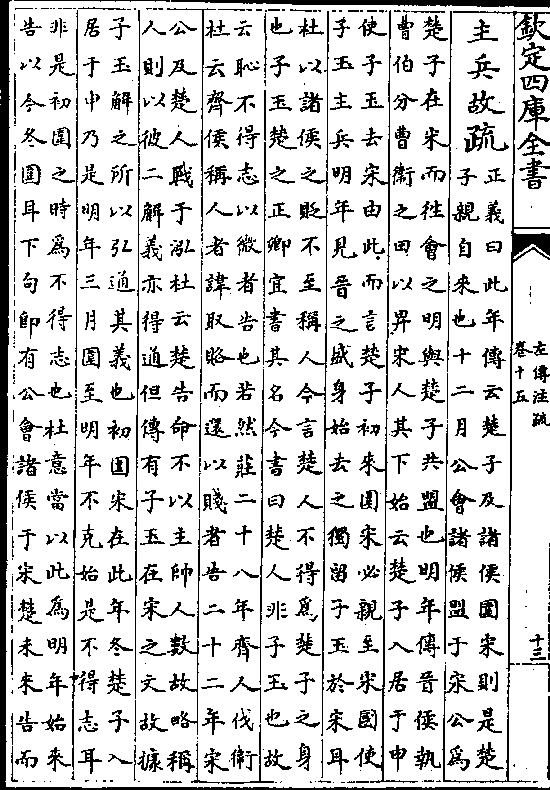 欽定四庫全書
左傳注疏
卷十五
十三
主兵故疏
正義曰此年傳云楚子及諸侯圍宋則是楚
子親自來也十二月公會諸侯盟于宋公為
楚子在宋而往會之明與楚子共盟也明年傳晉侯執
曹伯分曹衛之田以畀宋人其下始云楚子入居于申
使子玉去宋由此而言楚子初來圍宋必親至宋國使
子玉主兵明年見晉之盛身始去之獨留子玉於宋耳
杜以諸侯之貶不至稱人今言楚人不得為楚子之身
也子玉楚之正卿宜書其名今書曰楚人非子玉也故
云恥不得志以微者告也若然莊二十八年齊人伐衛
杜云齊侯稱人者諱取賂而還以賤者告二十二年宋
公及楚人戰于泓杜云楚告命不以主帥人數故略稱
人則以彼二解義亦得通但傳有子玉在宋之文故據
子玉解之所以弘通其義也初圍宋在此年冬楚子入
居于申乃是明年三月圍至明年不克始是不得志耳
非是初圍之時為不得志也杜意當以此為明年始來
告以今冬圍耳下句即有公會諸侯于宋楚未來告而